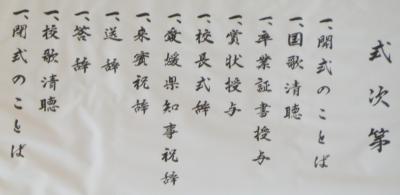 式次第
一、開式のことば
一、国歌清聴
一、卒業証書授与
一、賞状授与
一、校長式辞
一、愛媛県知事祝辞
一、来賓祝辞
一、送辞
一、答辞
一、校歌清聴
一、閉式のことば